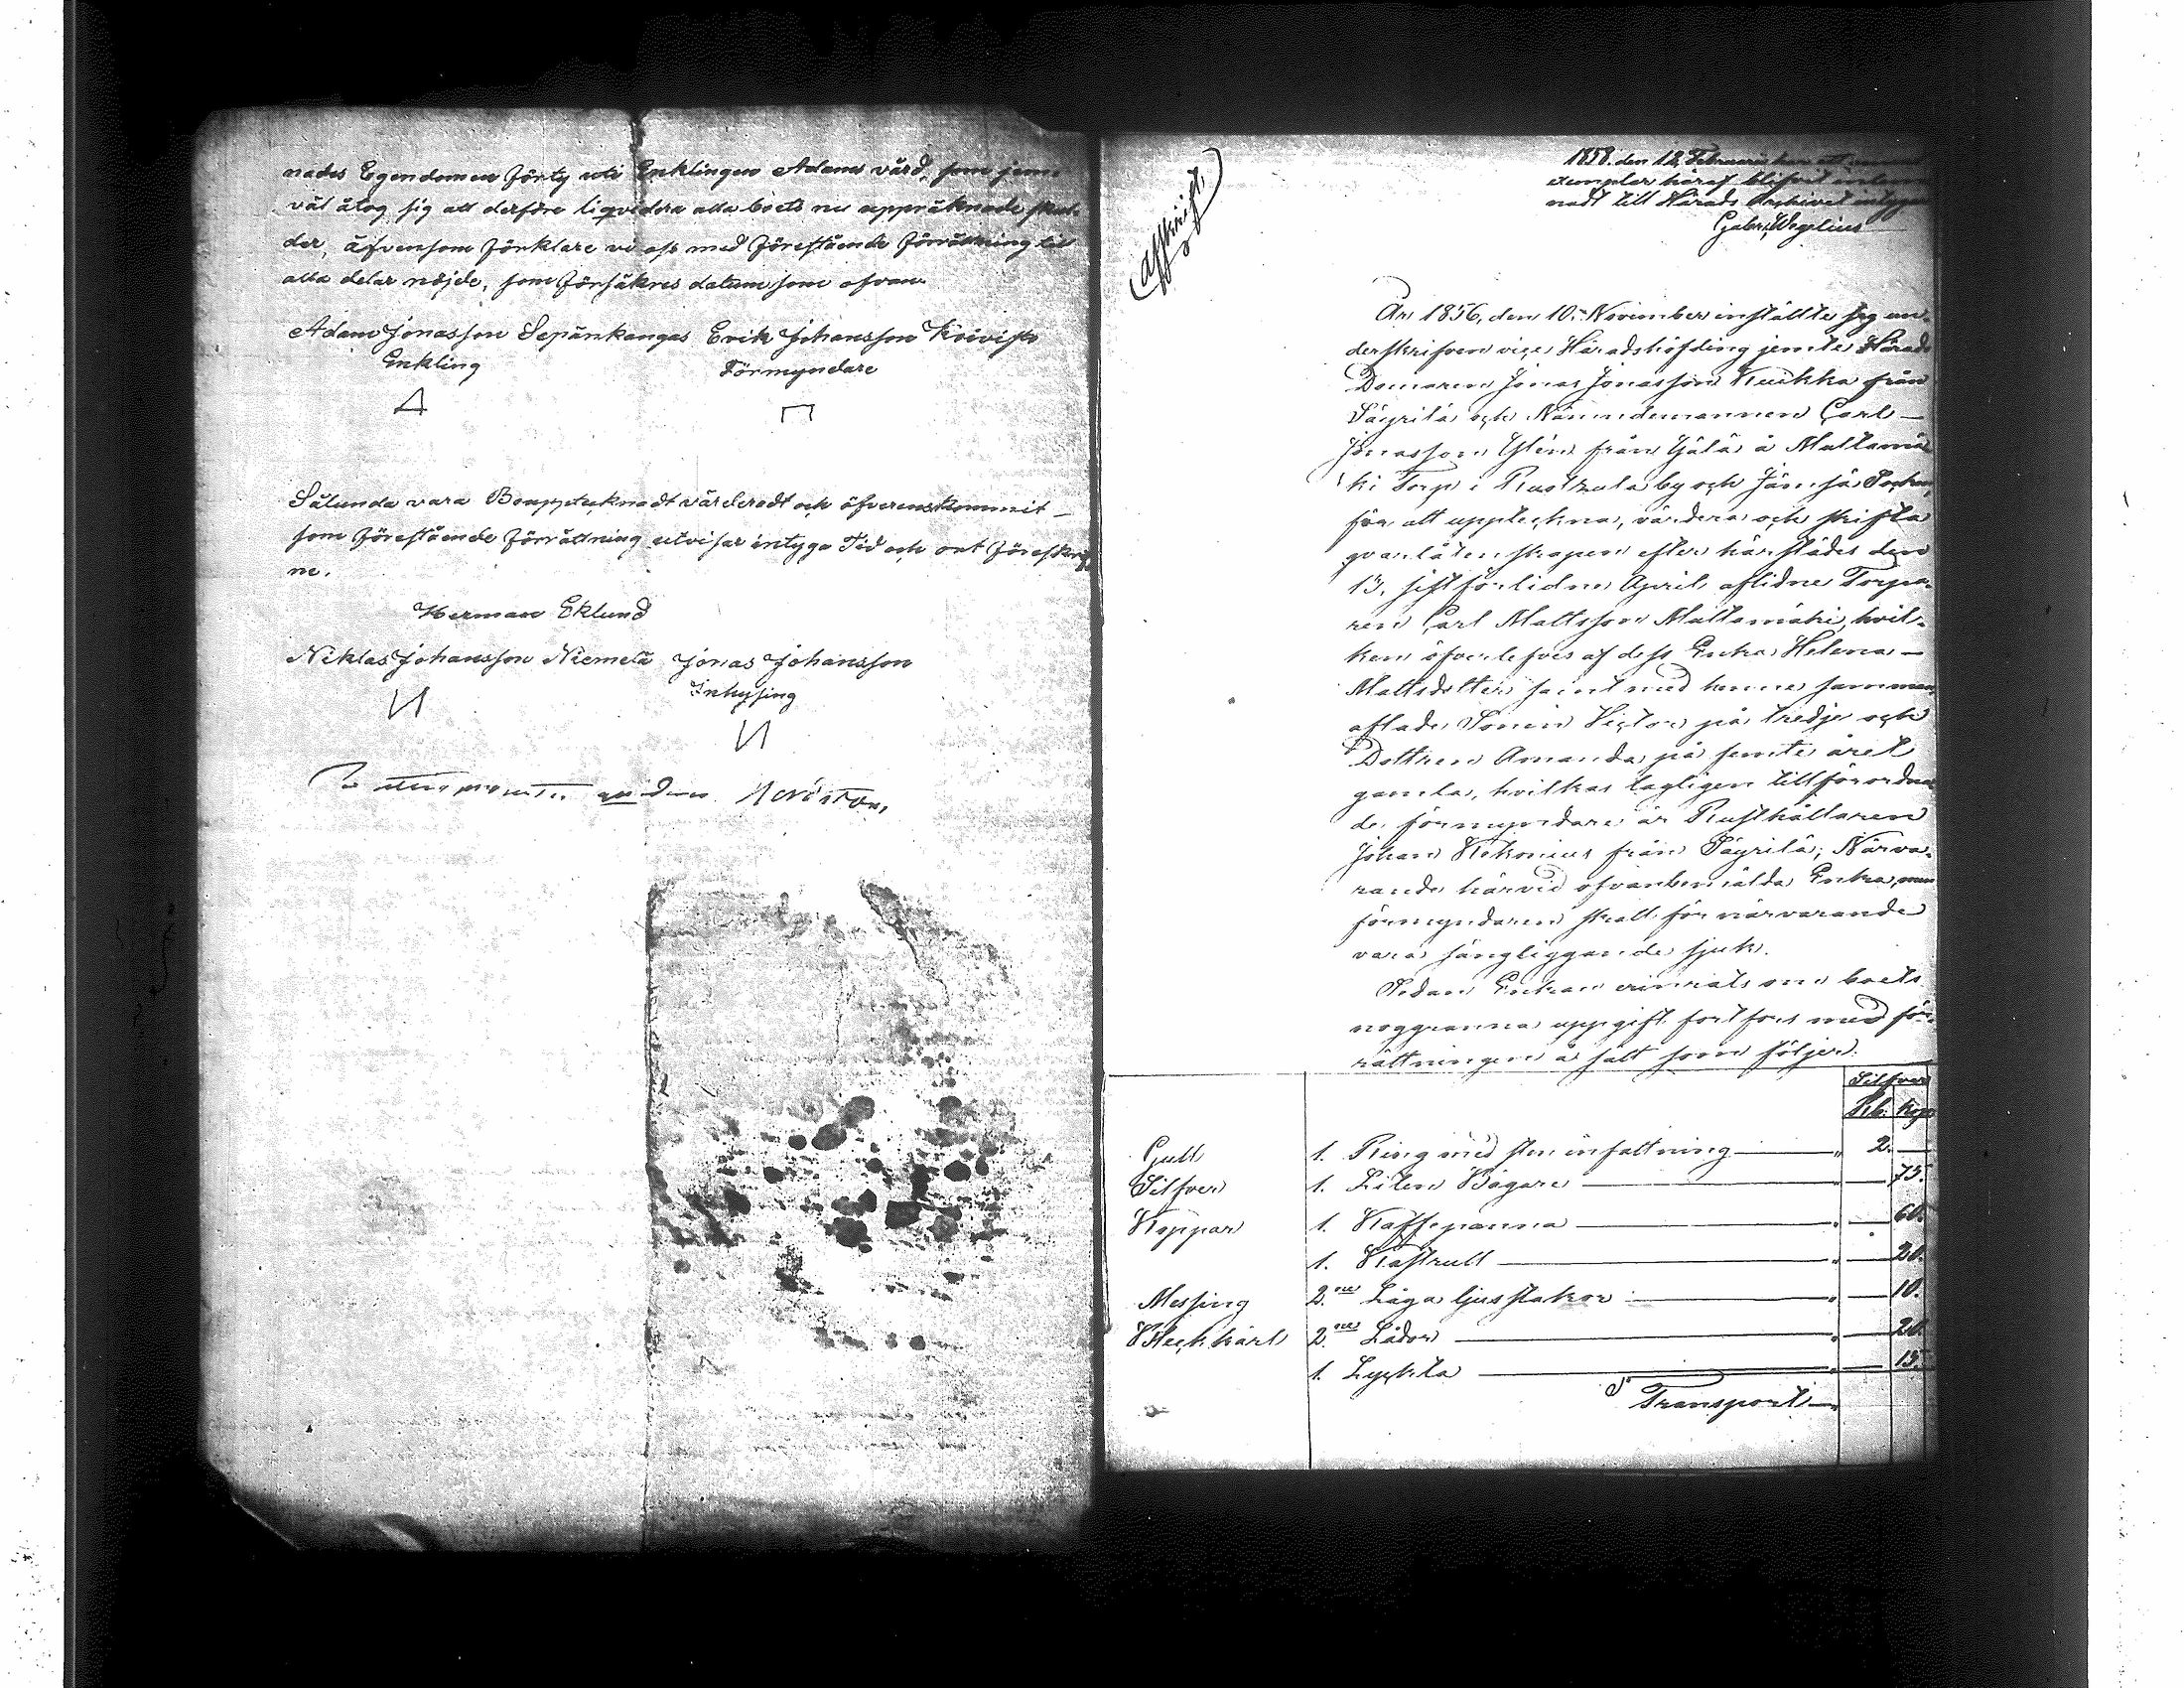 nades Egendomen förty uti Enklingen Adams vård, som jem-
väl åtog sig att derföre liqvidera alla boets nu uppräknade skul-
der, äfvensom förklare vi oss med förestående förrättning till
alla delar nöjde, som försäkres datum som ofvan
Adam Jonasson Sepänkangas Erik Johansson Koivisto
Enkling Förmyndare
Sålunda vara Bouppteknadt värderadt och öfverenskommit
som förestående förrättning utvisar intyga Tid och ort föreskrif
ne.
Herman Eklund
Niklas Johansson Niemelä Jonas Johansson
Inhysing
(Afskrift)
1858. den 12 Februarii har ett
exemplar häraf blifvit inlem
nadt till Härads Archivet intygar
Gabr. Wegelius
År 1856, den 10de November instälte jag un-
derskrifven vice Häradshöfding jemte Härads
Domaren Jonas Jonasson Kuikka från
Säyrilä och Nämndemannen Carl
Jonasson Yslin från Yjälä å Mattamä
ki Torp i Rustzula by och Jämsä Socken,
för att uppteckna, värdera och skifta
qvarlåtenskapen efter härstädes den
13, sistförlidne April aflidne Torpa-
ren Carl Mattsson Mattamäki, hvil-
ken öfverlefves af dess Enka Helena
Mattsdotter samt med henne samman
aflade Sonen Victor på tredje och
Dottren Amanda på femte året
gamla, hvilkas lagligen tillförordna
de förmyndare är Rusthållaren
Johan Kekonius från Säyrilä; Närva-
rande härvid ofvanbemälda Enka, men
förmyndaren skall för närvarande
vara sängliggande sjuk.
Sedan Enkan erinrats om boets
noggranna uppgift fortfors med för-
rättningen å sätt som följer:
Silfver
Rub. Kop.
Gull 1. Ring med sten infattning 2. —
Silfver 1. Liten Bägare — 75.
Koppar 1. Kaffepanna — 60.
1. Kastrull — 20.
Messing 2.ne Låga ljusstakar — 10.
Bleckkärl 2.ne Lådor — 20.
1. Lyckta — 15.
Transport